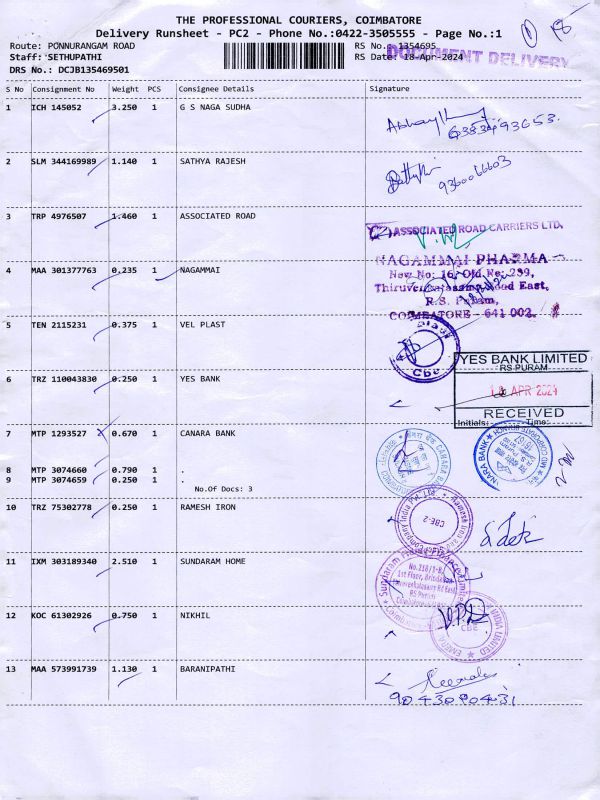 THE PROFESSIONAL COURIERS, COIMBATORE
Delivery Runsheet - PC2 - Phone No.:0422-3505555 - Page No.:1
Route: PONNURANGAM ROAD
RS No.: 1354695
Staff: SETHUPATHI
RS Date: 18-Apr-2024
DOCUMENT DELIVERY
DRS No.: DCJB135469501
S No Consignment No Weight PCS Consignee Details Signature
1 ICH 145052 3.250 1 G S NAGA SUDHA
2 SLM 344169989 1.140 1 SATHYA RAJESH
9360066603
3 TRP 4976507 1.460 1 ASSOCIATED ROAD
ASSOCIATED ROAD CARRIERS LTD.
4 MAA 301377763 0.235 1 NAGAMMAI
NAGAMMAI PHARMA
New No: 16, Old No: 299,
Road East,
R.S. Puram,
COIMBATORE - 641 002.
5 TEN 2115231 0.375 1 VEL PLAST
Cbe
6 TRZ 110043830 0.250 1 YES BANK
YES BANK LIMITED
RS PURAM
18 APR 2024
RECEIVED
Initials: Time:
7 MTP 1293527 0.670 1 CANARA BANK
8 MTP 3074660 0.790 1 .
9 MTP 3074659 0.250 1 .
No.Of Docs: 3
10 TRZ 75302778 0.250 1 RAMESH IRON
CBE-2
11 IXM 303189340 2.510 1 SUNDARAM HOME
No.118/1-B,
1st Floor, Brindavan
RS Puram
12 KOC 61302926 0.750 1 NIKHIL
13 MAA 573991739 1.130 1 BARANIPATHI